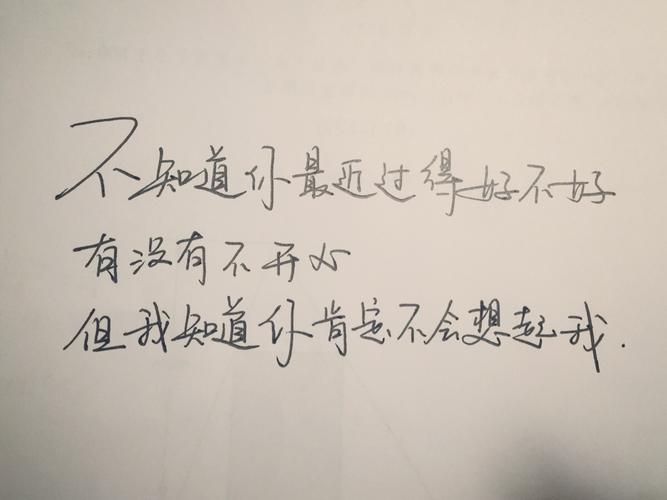 不知道你最近过得好不好
有没有不开心
但我知道你肯定不会想起我.